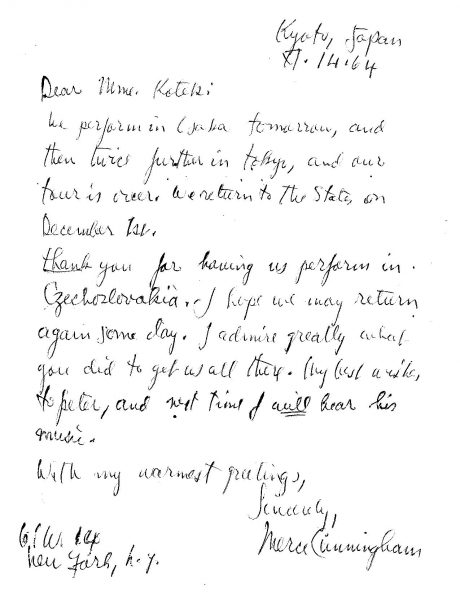 Kyoto, Japan
XI. 14. 64
Dear Mme. Koteki
We perform in Osaka tomorrow, and
then twice further in Tokyo, and our
tour is over. We return to the States on
December 1st.
Thank you for having us perform in
Czechozlovakia. I hope we may return
again some day. I admire greatly what
you did to get us all there. My best wishes
to Peter, and next time I will hear his
music.
With my warmest greetings,
Sincerely,
Merce Cunningham
New York, N.Y.